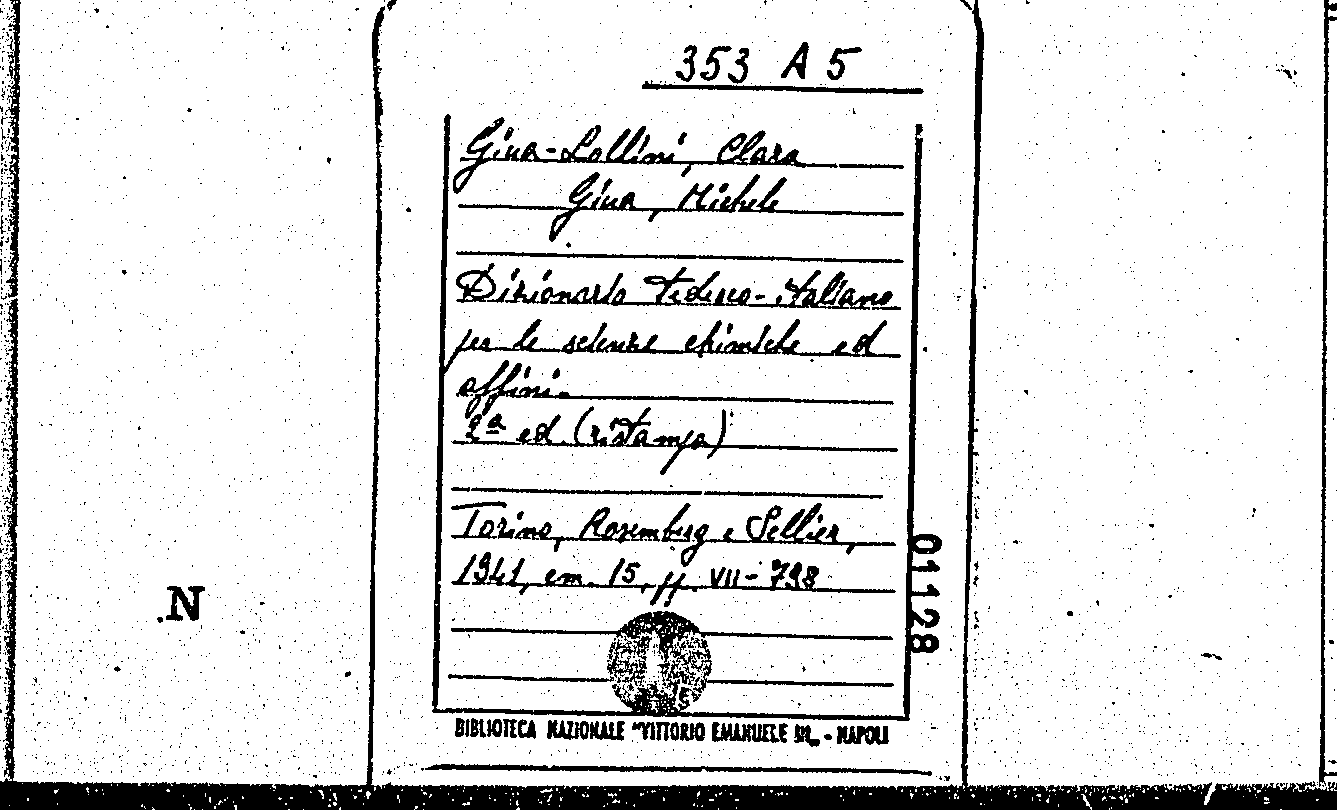 353 A 5
Giua-Lollini, Clara
Giua, Michele
Dizionario tedesco-italiano
per le scienze chimiche ed
affini.
2ª ed (ristampa)
Torino, Rosemberg e Sellier,
1941, cm. 15, pp. VII-798
01128
N
BIBLIOTECA NAZIONALE "VITTORIO EMANUELE III„ - NAPOLI